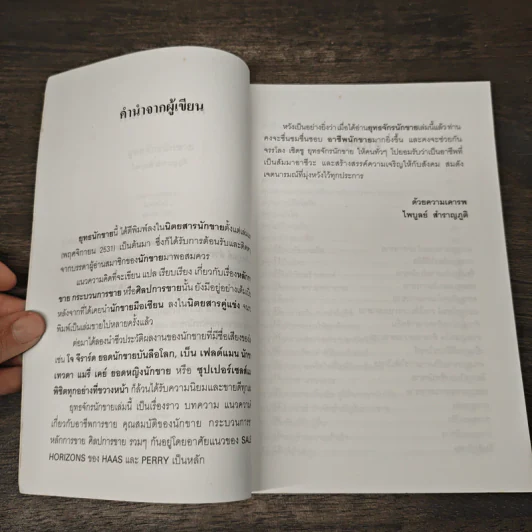 คำนำจากผู้เขียน
ยุทธนักขายนี้ ได้ตีพิมพ์ลงในนิตยสารนักขายตั้งแต่
(พฤศจิกายน 2531) เป็นต้นมา ซึ่งก็ได้รับการต้อนรับและ
จากบรรดาผู้อ่านสมาชิกของนักขายมาพอสมควร
แนวความคิดที่จะเขียน แปล เรียบเรียง เกี่ยวกับเรื่อง
ขาย กระบวนการขาย หรือศิลปการขายนั้น ยังมีอยู่อย่าง
หลังจากที่ได้เคยนำนักขายมือเซียน ลงในนิตยสารคู่แข่ง
พิมพ์เป็นเล่มขายไปหลายครั้งแล้ว
ต่อมาได้ลองนำชีวประวัติผลงานของนักขายที่มีชื่อเสียง
เช่น โจ จีราร์ด ยอดนักขายบันลือโลก, เบ็น เฟลด์แมน
เทวดา แมรี่ เคย์ ยอดหญิงนักขาย หรือ ซุปเปอร์เซลส์
พิชิตทุกอย่างที่ขวางหน้า ก็ล้วนได้รับความนิยมและขายดี
ยุทธจักรนักขายเล่มนี้ เป็นเรื่องราว บทความ แนวความ
เกี่ยวกับอาชีพการขาย คุณสมบัติของนักขาย กระบวนการ
หลักการขาย ศิลปการขาย รวมๆ กันอยู่โดยอาศัยแนวของ
HORIZONS ของ HAAS และ PERRY เป็นหลัก
หวังเป็นอย่างยิ่งว่า เมื่อได้อ่านยุทธจักรนักขายเล่มนี้แล้ว ท่าน
คงจะชื่นชมชื่นชอบ อาชีพนักขายมากยิ่งขึ้น และคงจะช่วยกัน
จรรโลง เชิดชู ยุทธจักรนักขาย ให้คนทั่วๆ ไปยอมรับว่าเป็นอาชีพที่
เป็นสัมมาอาชีวะ และสร้างสรรค์ความเจริญให้กับสังคม สมดัง
เจตนารมณ์ที่มุ่งหวังไว้ทุกประการ
ด้วยความเคารพ
ไพบูลย์ สำราญภูติ